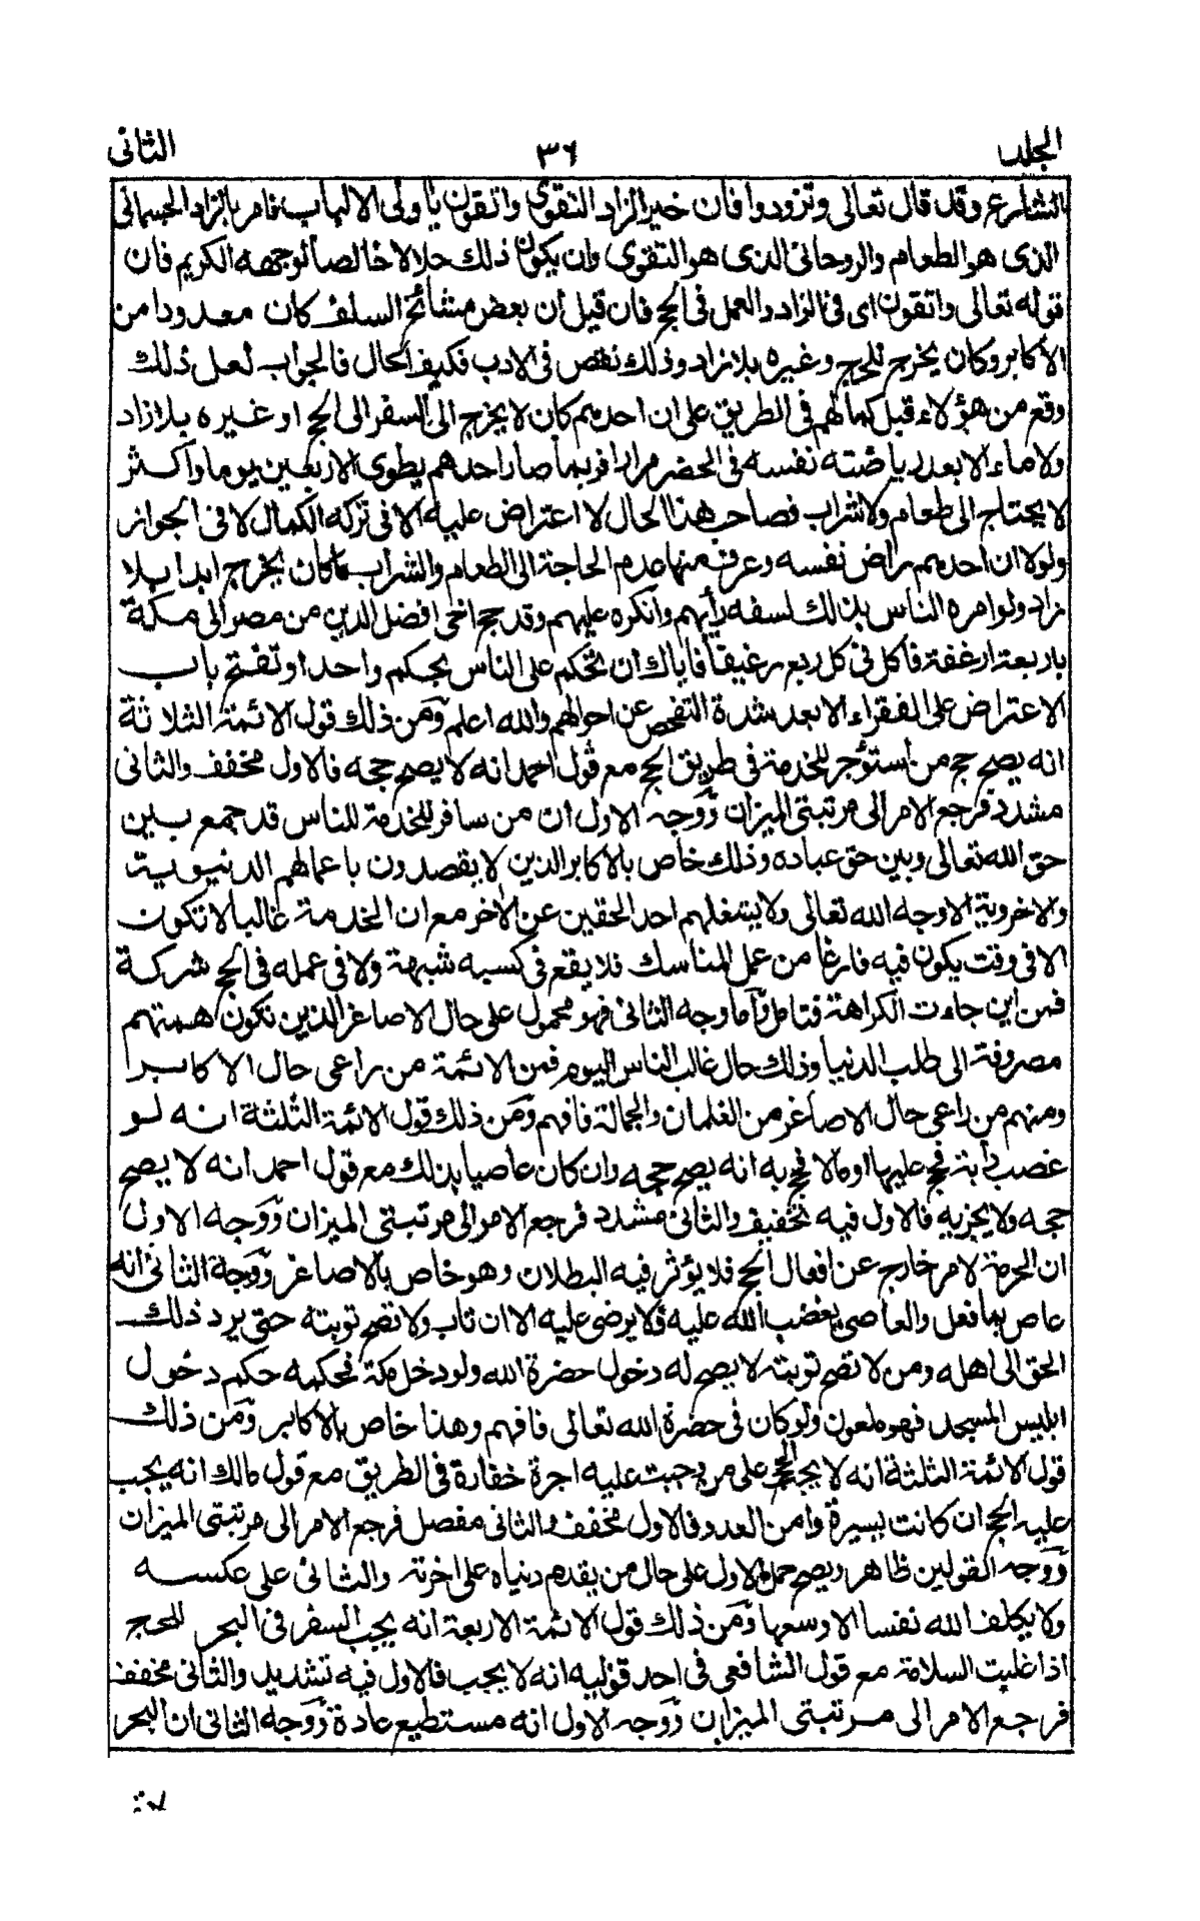 الجلد ٣٦ الثانى
الشارع وقد قال تعالى وتزودوا فان خير الزاد التقوى واتقون ياولى الالباب فامر بالزاد الجسمانى
الذى هو الطعام والروحانى الذى هو التقوى وان يكون ذلك حلالا خالصا لوجهه الكريم فان
قوله تعالى واتقون اى فى الزاد والعمل فى الحج فان قيل ان بعض مشائخ السلف كان معدودا من
الاكابر وكان يخرج للحج وغيره بلا زاد وذلك نقص فى الادب فكيف الحال فالجواب لعل ذلك
وقع من هؤلاء قبل كمالهم فى الطريق على ان احدهم كان لا يخرج الى السفر الى الحج او غيره بلا زاد
ولا ماء الا بعد رياضته نفسه فى الحضر مرارا فربما صار احدهم يطوى الاربعين يوما واكثر
لا يحتاج الى طعام ولا شراب فصاحب هذا الحال لا اعتراض عليه الا فى تركه الكمال لا فى الجواز
ولولا ان احدهم راض نفسه وعرف منها عدم الحاجة الى الطعام والشراب ماكان يخرج ابدا بلا
زاد ولو امره الناس بذلك لسفه رأيهم وانكره عليهم وقد حج اخى افضل الدين من مصر الى مكة
باربعة ارغفة فاكل فى كل ربع رغيفا فاياك ان تحكم على الناس بحكم واحد او تفتح باب
الاعتراض على الفقراء الا بعد شدة التفحص عن احوالهم والله اعلم ومن ذلك قول الائمة الثلاثة
انه يصح حج من استؤجر للخدمة فى طريق الحج مع قول احمد انه لا يصح حجه فالاول مخفف والثانى
مشدد فرجع الامر الى مرتبتى الميزان ووجه الاول ان من سافر للخدمة للناس قد جمع بين
حق الله تعالى وبين حق عباده وذلك خاص بالاكابر الذين لا يقصدون باعمالهم الدنيوية
ولاخروية الا وجه الله تعالى ولا يشغلهم احد الحقين عن الأخر مع ان الخدمة غالبا لا تكون
الا فى وقت يكون فيه فارغا من عمل المناسك فلا يقع فى كسبه شبهة ولا فى عمله فى الحج شركة
فمن اين جاءت الكراهة فتامل واما وجه الثانى فهو محمول على حال الاصاغر الذين تكون همتهم
مصروفة الى طلب الدنيا وذلك حال غالب الناس اليوم فمن الائمة من راعى حال الاكابر
ومنهم من راعى حال الاصاغر من الغلمان والجمالة فافهم ومن ذلك قول الائمة الثلثة انه لو
غصب دابة فحج عليها او مالا فحج به انه يصح حجه وان كان عاصيا بذلك مع قول احمد انه لا يصح
حجه ولا يجزيه فالاول فيه تخفيف والثانى مشدد فرجع الامر الى مرتبتى الميزان ووجه الاول
ان الحرمة لامر خارج عن افعال الحج فلا يؤثر فيه البطلان وهو خاص بالاصاغر ووجة الثانى انه
عاص بما فعل والعاصى يغضب الله عليه فلا يرضى عليه الا ان تاب ولا تصح توبتة حتى يرد ذلك
الحق الى اهله ومن لا تصح توبته لا يصح له دخول حضرة الله ولو دخل مكة فحكمه حكم دخول
ابليس المسجد فهو ملعون ولو كان فى حضرة الله تعالى فافهم وهذا خاص بالاكابر ومن ذلك
قول الائمة الثلثة انه لا يجب الحج على من وجبت عليه اجرة خفارة فى الطريق مع قول مالك انه يجب
عليه الحج ان كانت يسيرة وامن العدو فالاول مخفف والثانى مفصل فرجع الامر الى مرتبتى الميزان
ووجه القولين ظاهر ويصح حمل الاول على حال من يقدم دنياه على اخرته والثانى على عكسه
ولا يكلف الله نفسا الا وسعها ومن ذلك قول الائمة الاربعة انه يجب السفر فى البحر للحج
اذا غلبت السلامة مع قول الشافعى فى احد قوليه انه لا يجب فالاول فيه تشديد والثانى مخفف
فرجع الامر الى مرتبتى الميزان ووجه الاول انه مستطيع عادة ووجه الثانى ان البحر